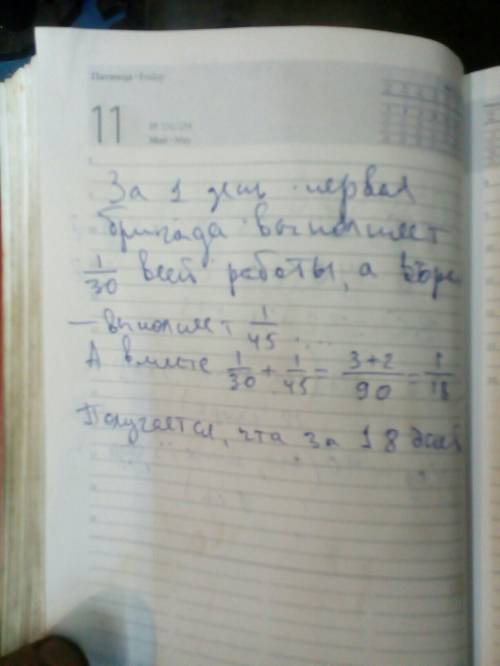 Пятница · Friday
11
Май · May
За 1 день первая
бригада выполняет
1/30 всей работы, а
— выполняет 1/45 ...
А вместе 1/30 + 1/45 = 3+2/90 = 1/18
Получается, что за 18 дней